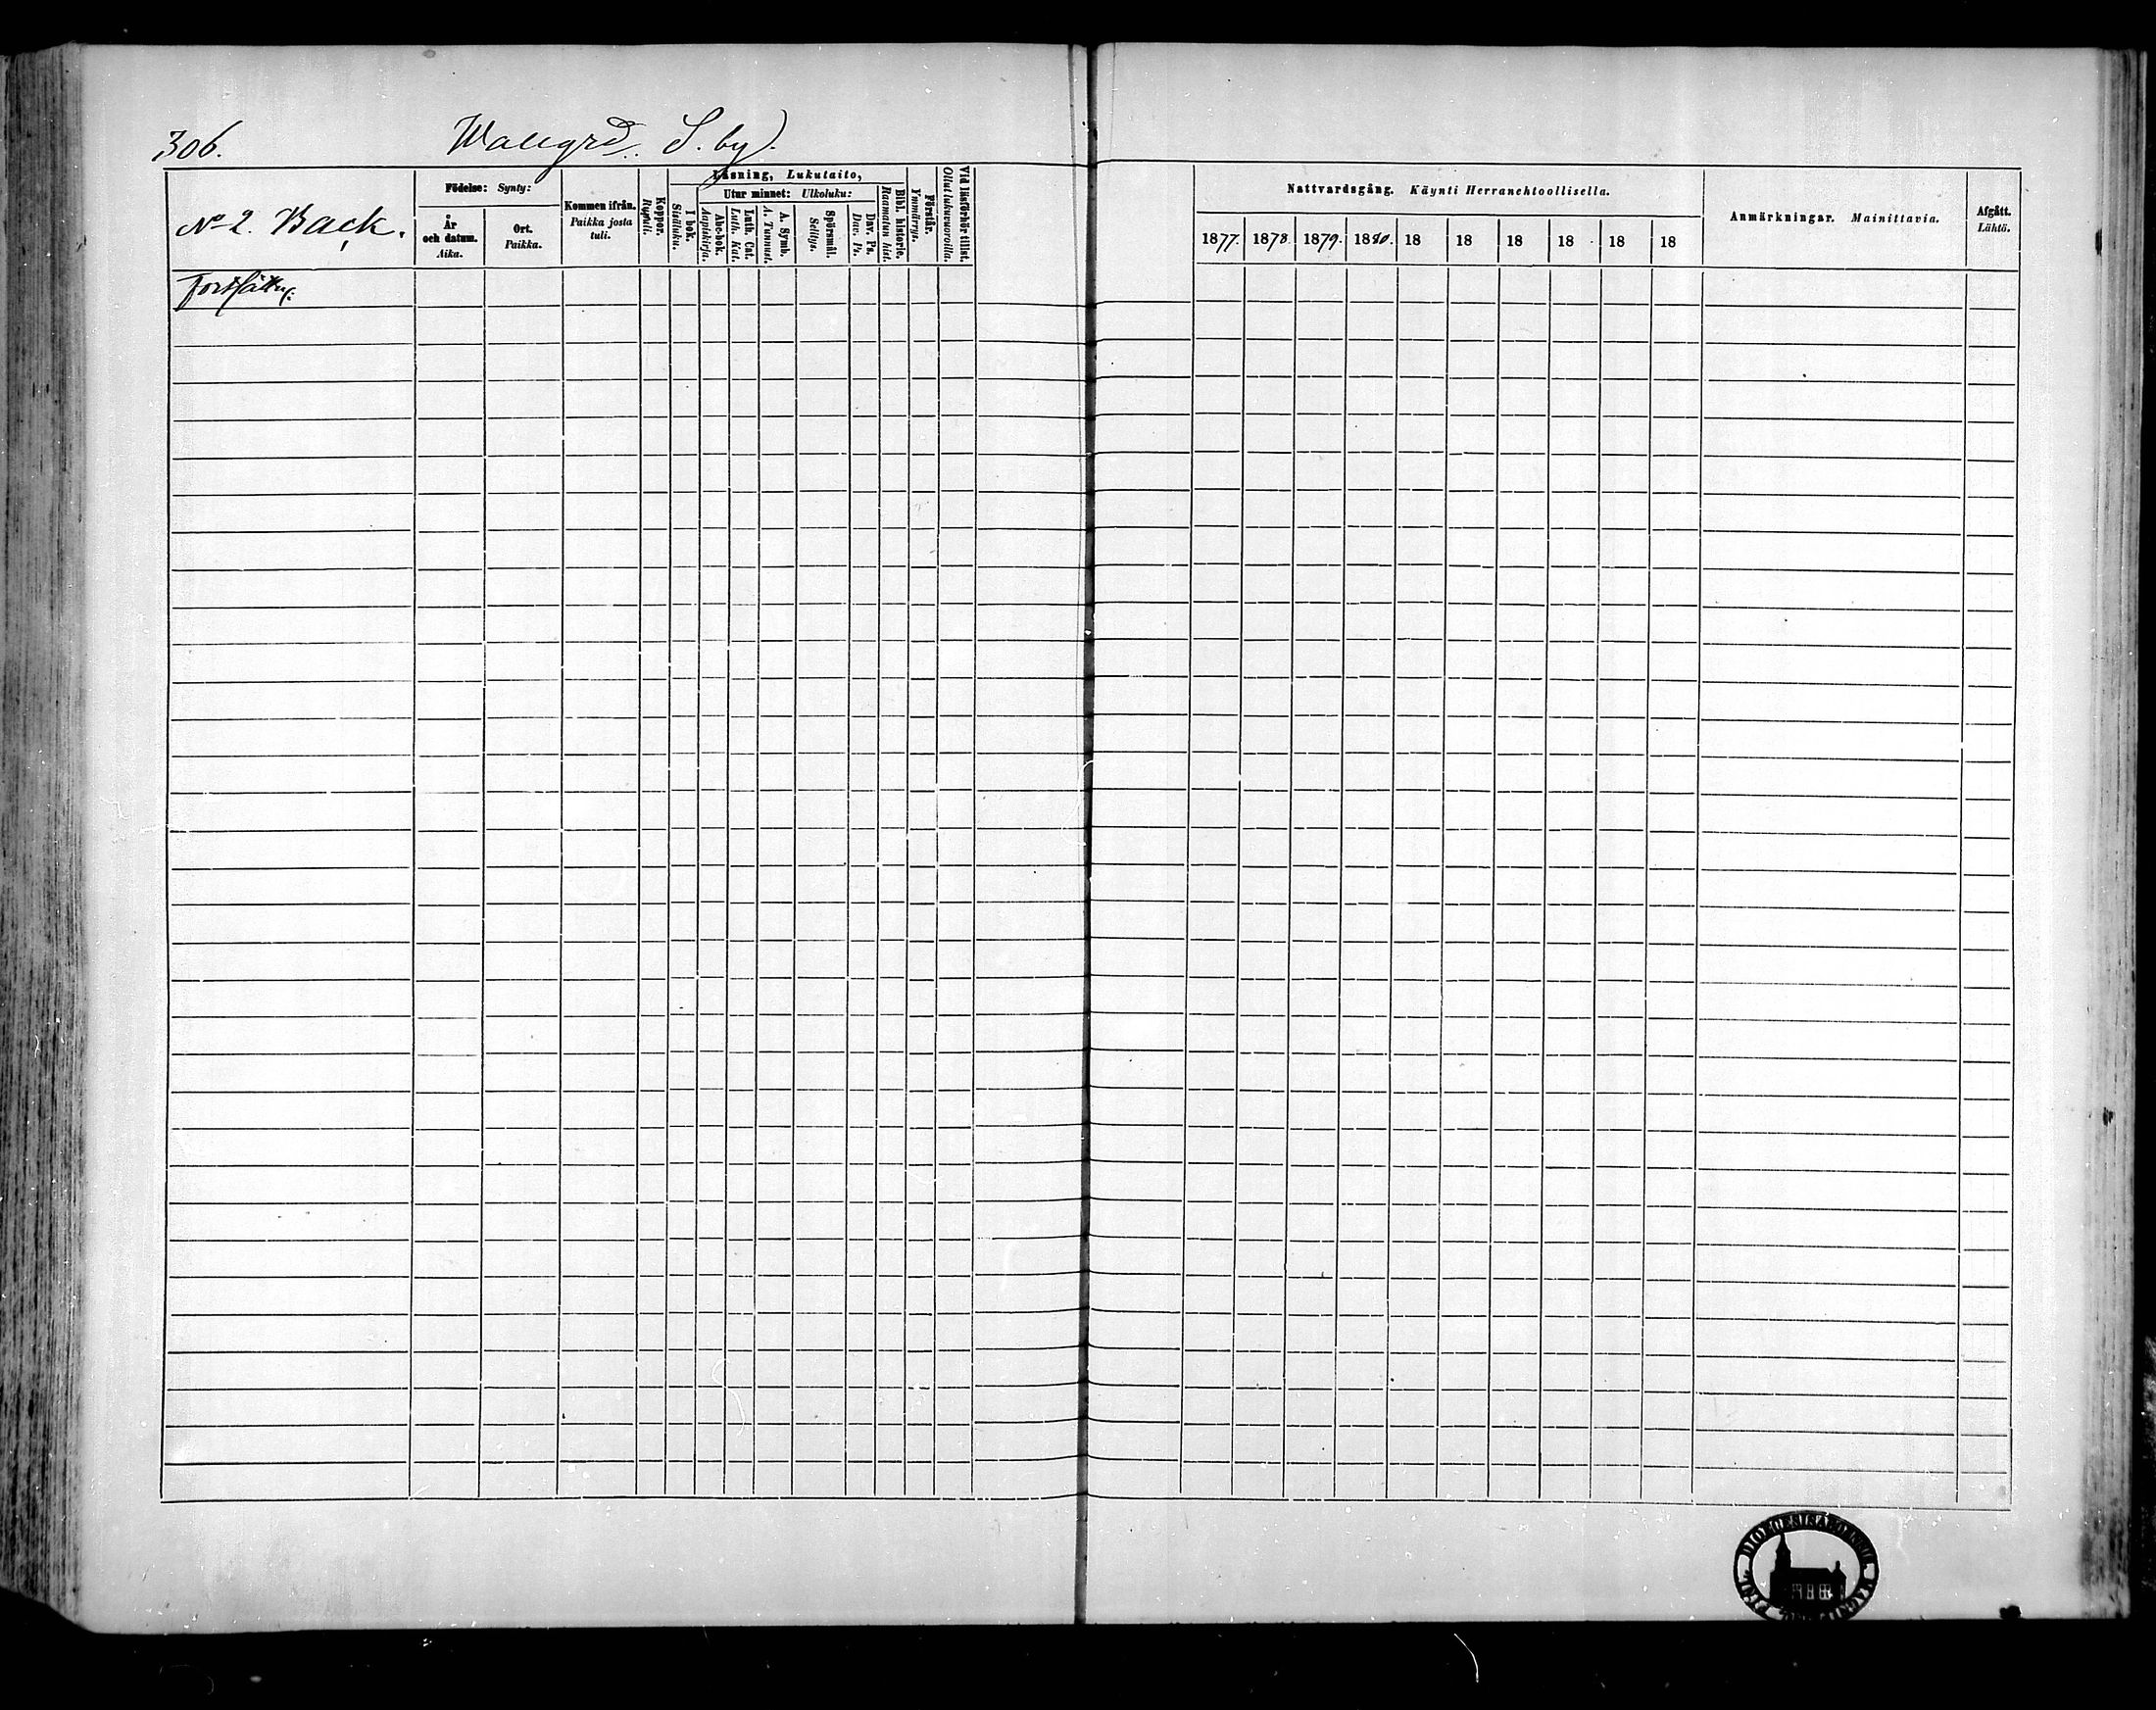 306. Wallgrd. S. by.
No 2. Back.
Födelse: Synty:
År och datum. Aika.
Ort. Paikka.
Kommen ifrån. Paikka josta tuli.
Koppor. Rupuli.
Läsning, Lukutaito,
I bok. Sisäluku.
Utur minnet: Ulkoluku:
Abc-bok. Aapiskirja.
Luth. Cat. Luth. Kat.
A. Symb. A. Tunnust.
Spörsmål. Selitys.
Dav. Ps. Dav. Ps.
Bibl. historie. Raamatun hist.
Förstår. Ymmärrys.
Vid läsförhör tillst. Ollut lukuvuoroilla.
Nattvardsgång. Käynti Herranehtoollisella.
1877. 1878. 1879. 1880. 18 18 18 18 18 18
Anmärkningar. Mainittavia.
Afgått. Lähtö.
Fortsättn: